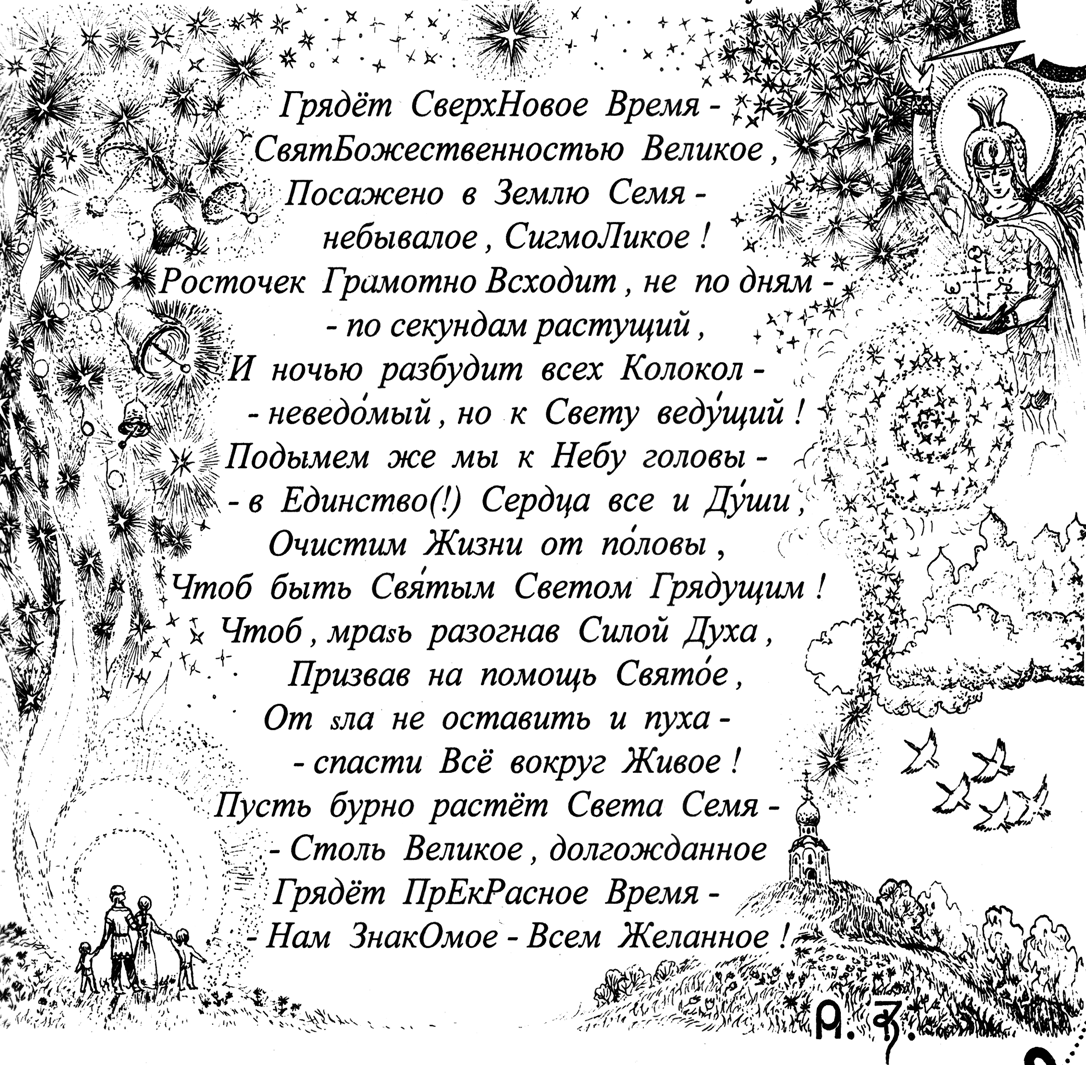 Грядёт СверхНовое Время -
СвятБожественностью Великое ,
Посажено в Землю Семя -
небывалое , СигмоЛикое !
Росточек Грамотно Всходит , не по дням -
- по секундам растущий ,
И ночью разбудит всех Колокол -
- неведо́мый , но к Свету веду́щий !
Подымем же мы к Небу головы -
- в Единство(!) Сердца все и Ду́ши ,
Очистим Жизни от по́ловы ,
Чтоб быть Свя́тым Светом Грядущим !
Чтоб , мраѕь разогнав Силой Духа ,
Призвав на помощь Свято́е ,
От ѕла не оставить и пуха -
- спасти Всё вокруг Живое !
Пусть бурно растёт Света Семя -
- Столь Великое , долгожданное
Грядёт ПрЕкРасное Время -
- Нам ЗнакОмое - Всем Желанное !